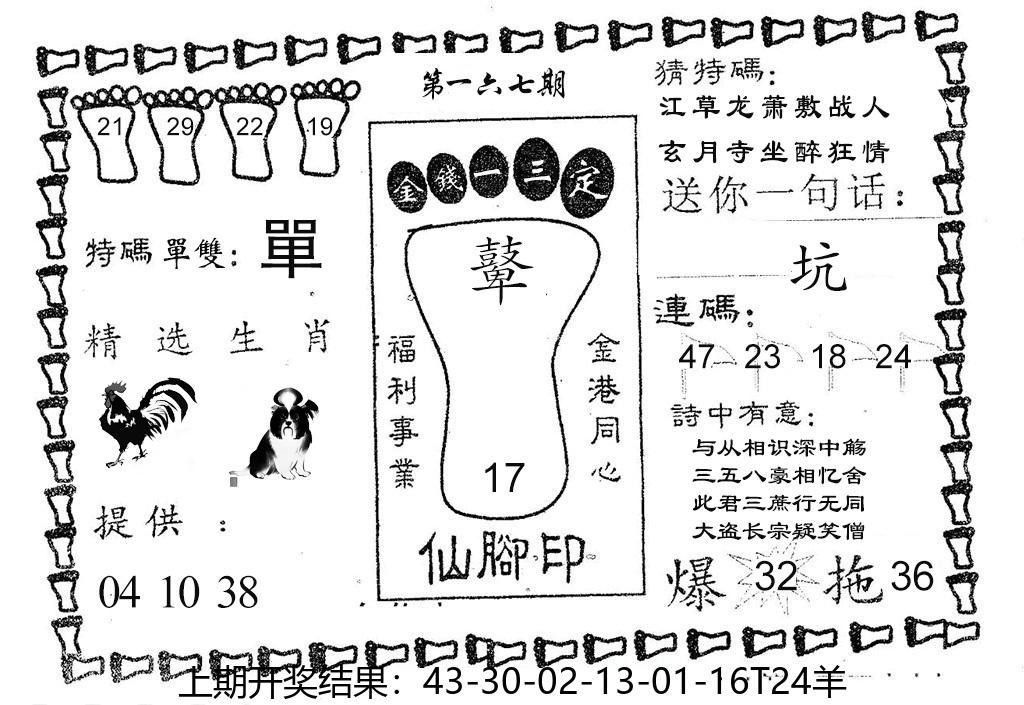 第一六七期
21 29 22 19
特碼單雙: 單
精选生肖
提供:
04 10 38
金錢一三定
鼙
福利事業
金港同心
17
仙腳印
猜特碼:
江草龙萧敷战人
玄月寺坐醉狂情
送你一句话:
坑
連碼:
47 23 18 24
詩中有意:
与从相识深中觞
三五八豪相忆舍
此君三蔗行无同
大盗长宗疑笑僧
爆 32 拖 36
上期开奖结果：43-30-02-13-01-16T24羊